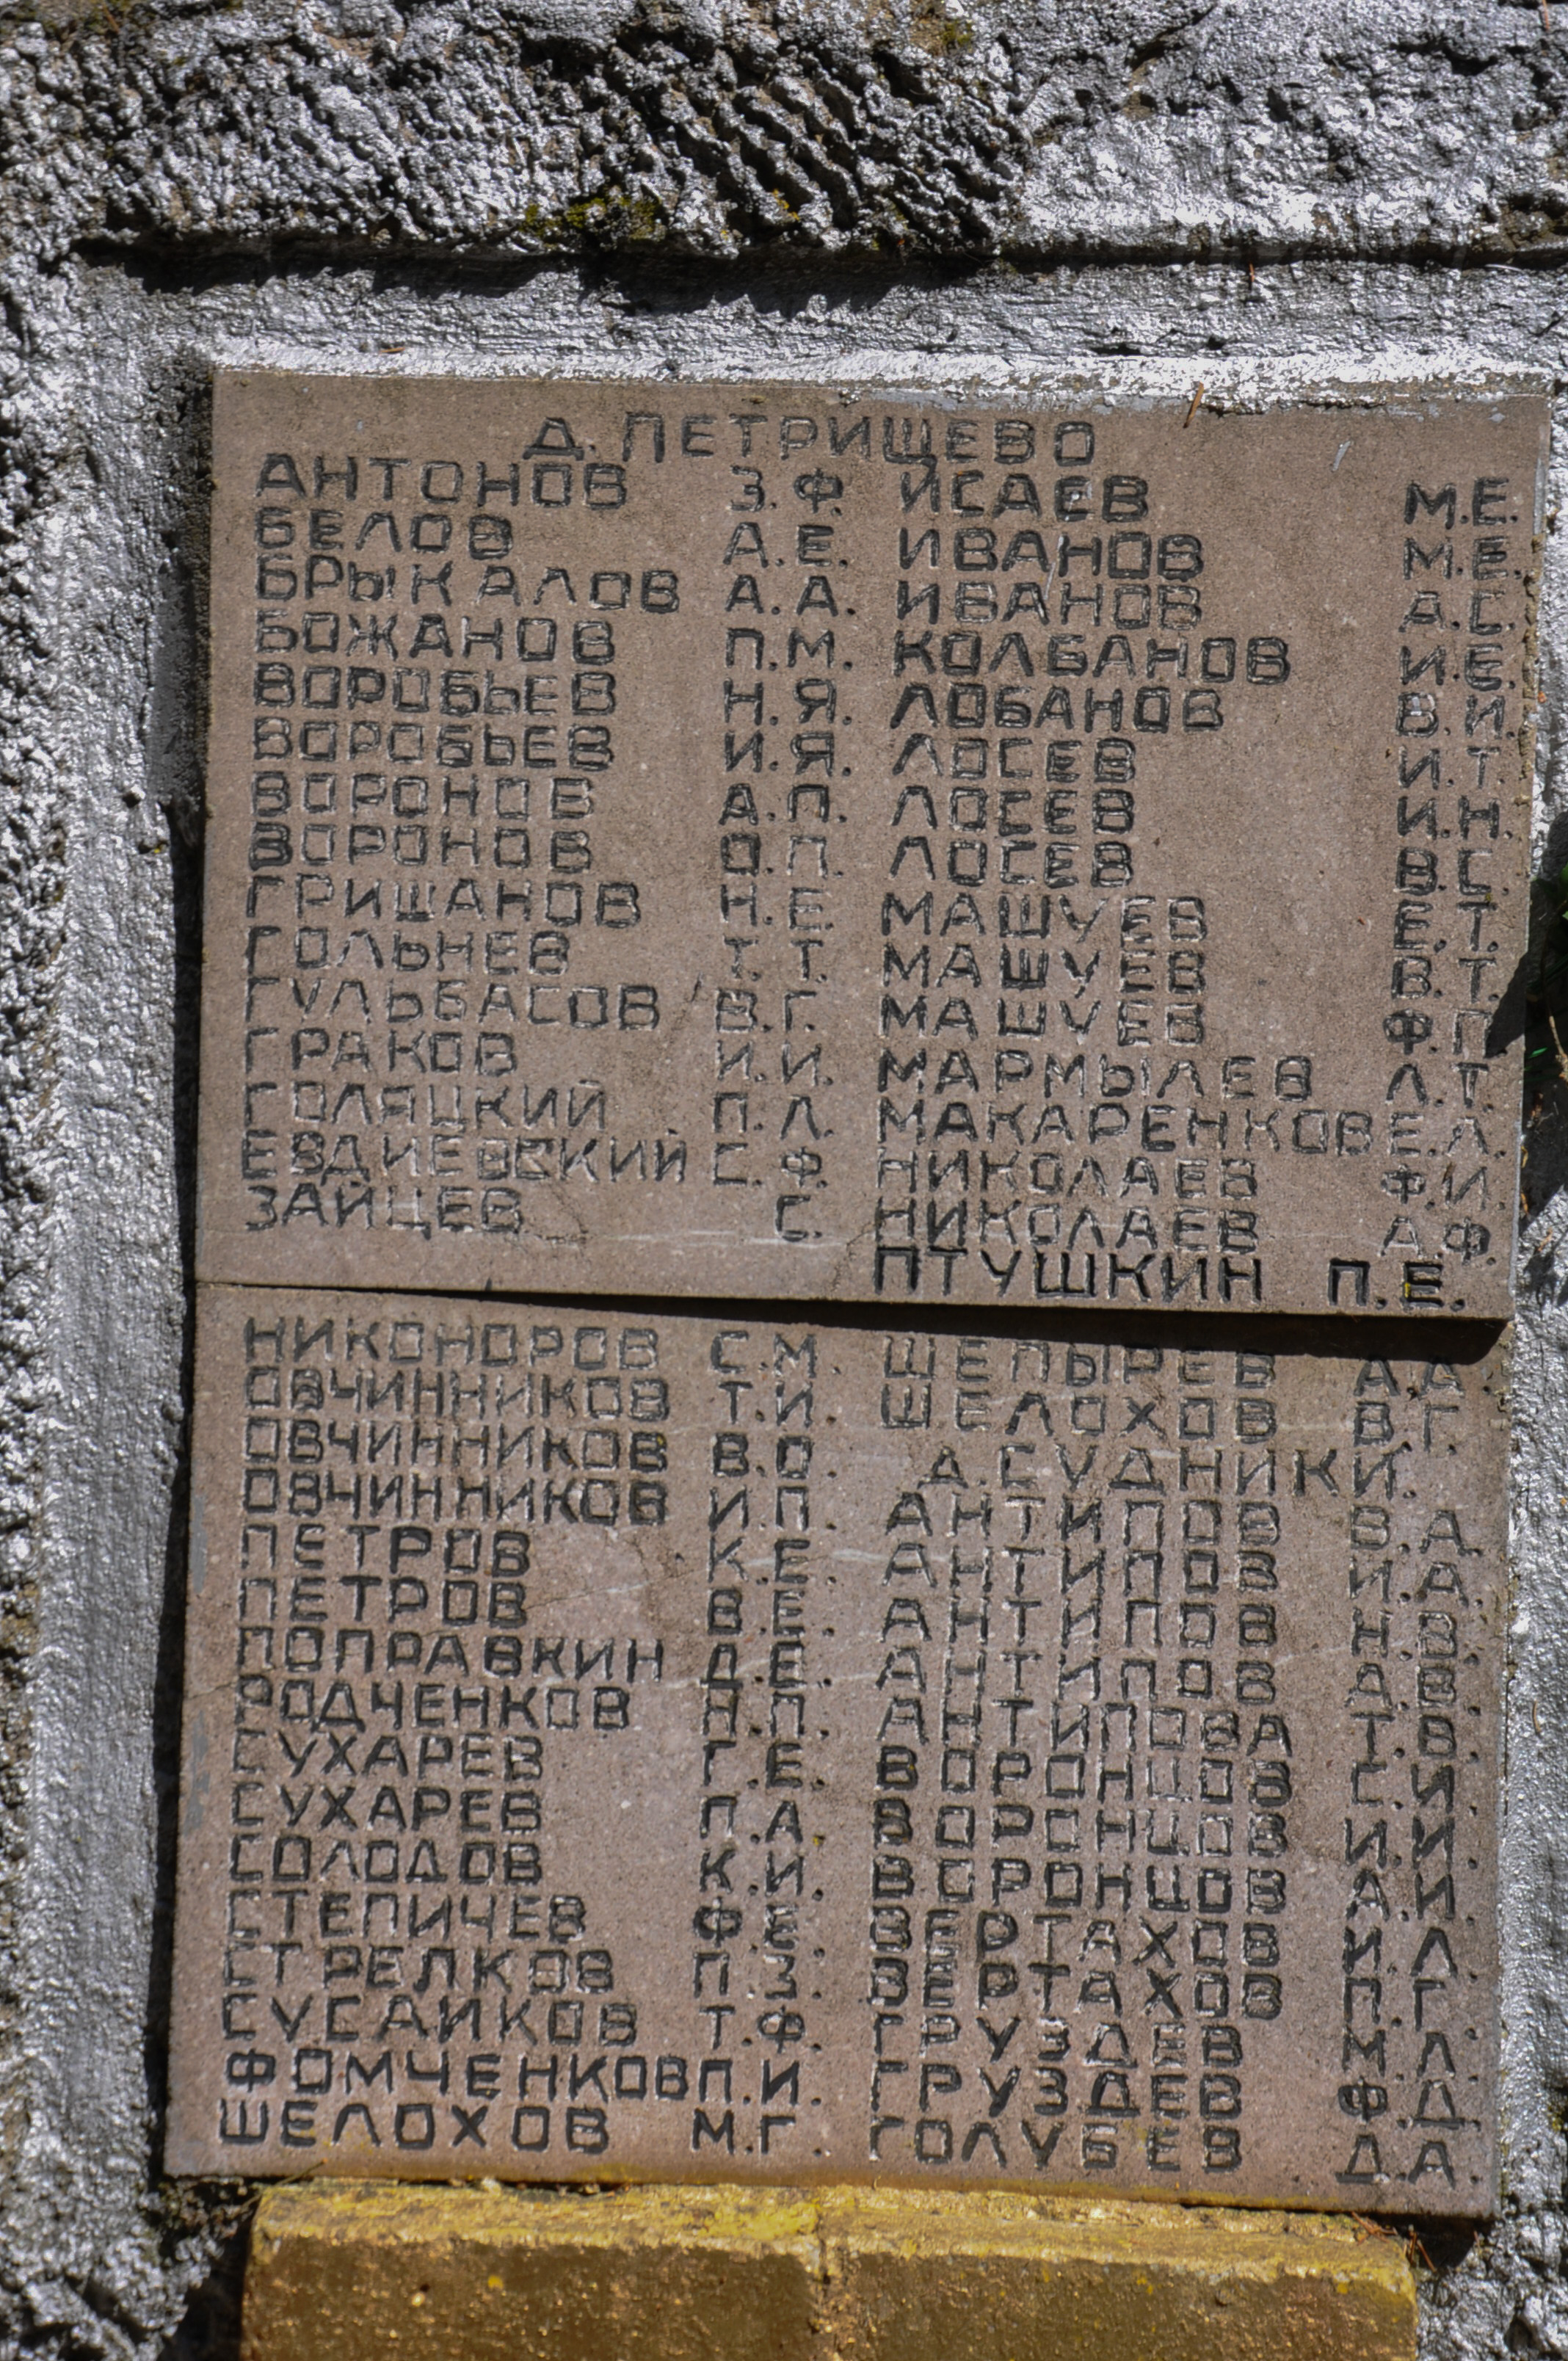 Д. ПЕТРИЩЕВО
АНТОНОВ З.Ф.
БЕЛОВ А.Е.
БРЫКАЛОВ А.А.
БОЖАНОВ П.М.
ВОРОБЬЕВ Н.Я.
ВОРОБЬЕВ И.Я.
ВОРОНОВ А.П.
ВОРОНОВ О.П.
ГРИШАНОВ Н.Е.
ГОЛЬНЕВ Т.Т.
ГУЛЬБАСОВ В.Г.
ГРАКОВ И.И.
ГОЛЯЦКИЙ П.Л.
ЕВДИЕВСКИЙ С.Ф.
ЗАЙЦЕВ С.
ИСАЕВ М.Е.
ИВАНОВ М.Е.
ИВАНОВ А.С.
КОЛБАНОВ И.Е.
ЛОБАНОВ В.И.
ЛОСЕВ И.Т.
ЛОСЕВ И.Н.
ЛОСЕВ В.С.
МАШУЕВ Е.Т.
МАШУЕВ В.Т.
МАШУЕВ Ф.П.
МАРМЫЛЕВ Л.Т.
МАКАРЕНКОВ Е.Л.
НИКОЛАЕВ Ф.И.
НИКОЛАЕВ А.Ф.
ПТУШКИН П.Е.
НИКОНОРОВ С.М.
ОВЧИННИКОВ Т.И.
ОВЧИННИКОВ В.О.
ОВЧИННИКОВ И.П.
ПЕТРОВ К.Е.
ПЕТРОВ В.Е.
ПОПРАВКИН Д.Е.
РОДЧЕНКОВ Н.П.
СУХАРЕВ Г.Е.
СУХАРЕВ П.А.
СОЛОДОВ К.И.
СТЕПИЧЕВ Ф.Е.
СТРЕЛКОВ П.З.
СУСАИКОВ Т.Ф.
ФОМЧЕНКОВ П.И.
ШЕЛОХОВ М.Г.
ШЕПЫРЕВ А.А.
ШЕЛОХОВ В.Г.
Д.СУДНИКИ.
АНТИПОВ В.А.
АНТИПОВ И.А.
АНТИПОВ Н.В.
АНТИПОВ А.В.
АНТИПОВА Т.В.
ВОРОНЦОВ С.И.
ВОРОНЦОВ И.И.
ВОРОНЦОВ А.И.
ВЕРТАХОВ И.Л.
ВЕРТАХОВ П.Г.
ГРУЗДЕВ М.Л.
ГРУЗДЕВ Ф.Д.
ГОЛУБЕВ Д.А.